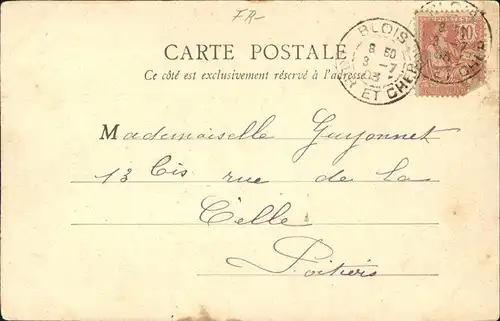 FR-
BLOIS
8 50
3 -7
03
LOIR ET CHER
10
CARTE POSTALE
Ce côté est exclusivement réservé à l'adresse
Mademoiselle Guyonnet
13 bis rue de la
Celle
Poitiers